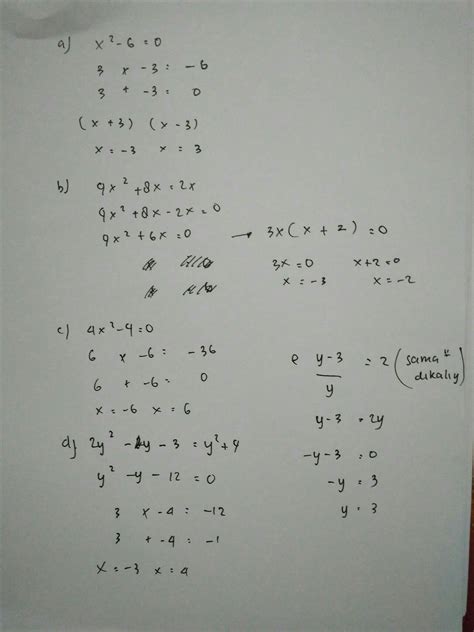 a) x² - 6 = 0
3 x - 3 = - 6
3 + - 3 = 0
(x + 3) (x - 3)
x = - 3 x = 3
b) 9x² + 8x = 2x
9x² + 8x - 2x = 0
9x² + 6x = 0 → 3x (x + 2) = 0
3x = 0 x + 2 = 0
x = - 3 x = - 2
c) 4x² - 4 = 0
6 x - 6 = - 36
6 + - 6 = 0
x = - 6 x = 6
d) 2y² - y - 3 = y² + 4
y² - y - 12 = 0
3 x - 4 = - 12
3 + - 4 = - 1
x = - 3 x = 4
e y - 3 / y = 2 (sama" dikali y)
y - 3 = 2y
- y - 3 = 0
- y = 3
y = 3